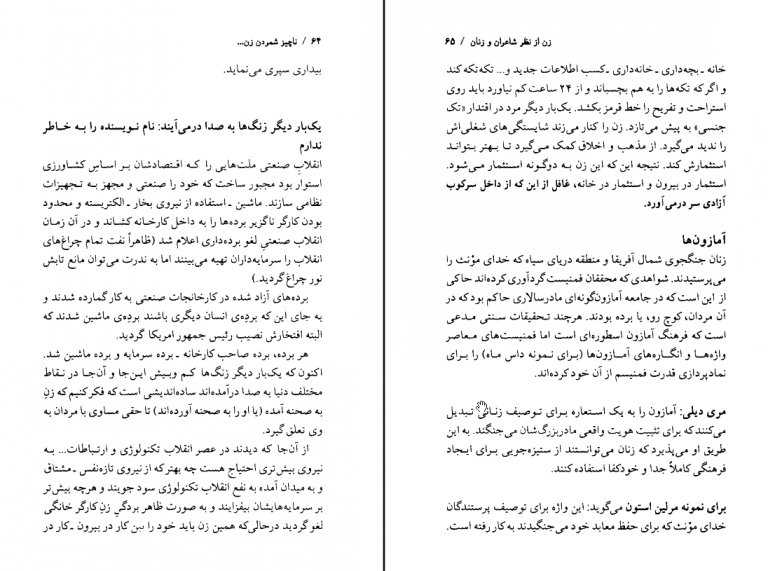 ۶۴ / ناچیز شمردن زن...
بیداری سپری می‌نماید.
یک‌بار دیگر زنگ‌ها به صدا درمی‌آیند: نام نویسنده را به خاطر
ندارم
انقلاب صنعتی ملت‌هایی را کـه اقتصادشان بر اساسِ کشـاورزی
استوار بود مجبور ساخت که خود را صنعتی و مجهز بـه تـجهیزات
نظامی سازند. ماشین ـ استفاده از نیروی بخار ـ الکتریسته و محدود
بودن کارگر ناگزیر برده‌ها را به داخل کارخـانه کشـاند و در آن زمـان
انقلاب صنعتیِ لغو برده‌داری اعلام شد (ظاهراً نفت تمام چراغ‌های
انقلاب را سرمایه‌داران تهیه می‌بینند اما به ندرت می‌توان مانع تابش
نور چراغ گردید.)
برده‌های آزاد شده در کارخانجات صنعتی به کار گمارده شدند و
به جای این که برده‌ی انسان دیگری باشند برده‌ی ماشین شدند که
البته افتخارش نصیب رئیس جمهور امریکا گردید.
هر برده، برده صاحب کارخانه ـ برده سرمایه و برده ماشین شد.
اکنون که یک‌بار دیگر زنگ‌ها کـم وبـیش ایـن‌جا و آن‌جـا در نـقاط
مختلف دنیا به صدا درآمده‌اند ساده‌اندیشی است که فکر کنیم که زنِ
به صحنه آمده (یا او را به صحنه آورده‌اند) تا حقی مساوی با مردان به
وی تعلق گیرد.
از آن‌جا که دیدند در عصر انقلاب تکنولوژی و ارتباطات... بـه
نیروی بیش‌تری احتیاج هست چه بهتر که از نیروی تازه‌نفس ـ مشتاق
و به میدان آمده به نفع انقلاب تکنولوژی سود جویند و هرچه بیش‌تر
بر سرمایه‌هایشان بیفزایند و به صورت ظاهر بردگیِ زنِ کارگر خانگی
لغو گردید درحالی‌که همین زن باید خود را بین کار در بیرون ـ کار در
زن از نظر شاعران و زنان / ۶۵
خانه ـ بچه‌داری ـ خانه‌داری ـ کسب اطلاعات جدید و... تکه‌تکه کند
و اگر که تکه‌ها را به هم بچسباند و از ۲۴ ساعت کم نیاورد باید روی
استراحت و تفریح را خط قرمز بکشد. یک‌بار دیگر مرد در اقتدار «تک
جنسی» به پیش می‌تازد. زن را کنار می‌زند شایستگی‌های شغلی‌اش
را ندید می‌گیرد. از مذهب و اخلاق کمک می‌گیرد تـا بهتر بـتوانـد
استثمارش کند. نتیجه این که این زن بـه دوگـونه اسـتثمار مـی‌شود.
استثمار در بیرون و استثمار در خانه، غافل از این که از داخل سرکوب
آزادی سر درمی‌آورد.
آمازون‌ها
زنان جنگجوی شمال آفریقا و منطقه دریای سیاه که خدای مؤنث را
می‌پرستیدند. شواهدی که محققان فمنیست گردآوری کرده‌اند حاکی
از این است که در جامعه آمازون‌گونه‌ای مادرسالاری حاکم بود که در
آن مردان، کوچ رو، یا برده بودند. هرچند تحقیقات سنتی مدعی
است که فرهنگ آمازون اسطوره‌ای است اما فمنیست‌های معاصر
واژه‌ها و انگاره‌های آمـازون‌ها (بـرای نمونه داس مـاه) را بـرای
نمادپردازی قدرت فمنیسم از آن خود کرده‌اند.
مری دیلی: آمازون را به یک استعاره بـرای تـوصیف زنـانی تبدیل
می‌کنند که برای تثبیت هویت واقعی مادربزرگ‌شان می‌جنگند. به این
طریق او می‌پذیرد که زنان می‌توانستند از ستیزه‌جویی بـرای ایـجاد
فرهنگی کاملاً جدا و خودکفا استفاده کنند.
برای نمونه مرلین استون می‌گوید: این واژه برای توصیف پرستندگان
خدای مؤنث که برای حفظ معابد خود می‌جنگیدند به کار رفته است.